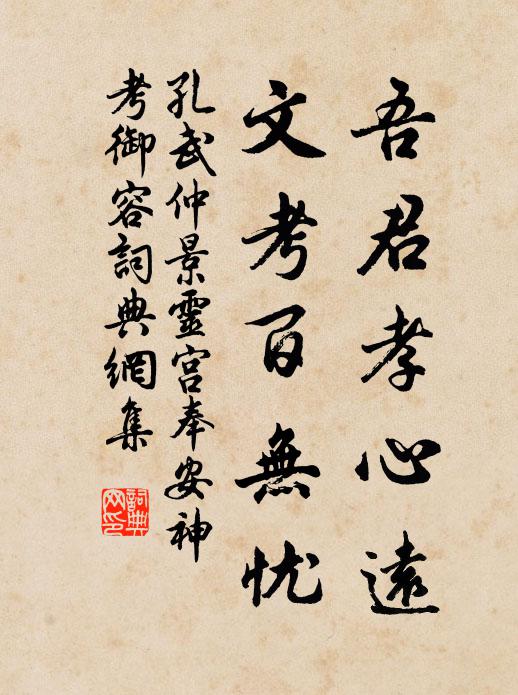 吾君孝心遠
文考百無忧
孔武仲景靈宮奉安神
考御容詞典網集
詞典
网印